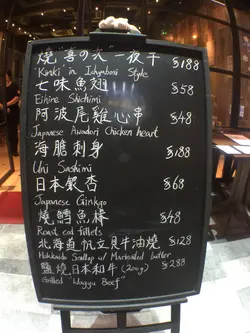 燒"喜の次一夜干 $188
"Kinki" in Ichyaboni Style
七味魚翅 $58
Eihire Shichimi
阿波尾雞心串 $48
Japanese Awadori Chicken heart
海膽刺身 $188
Uni Sashimi
日本銀杏 $68
Japanese Ginkgo
燒鱈魚棒 $48
Roast cod fillets
北海道帆立貝牛油燒 $128
Hokkaido Scallop w/ Marinated butter
鹽燒日本和牛(200g) $288
Grilled "Wagyu Beef"